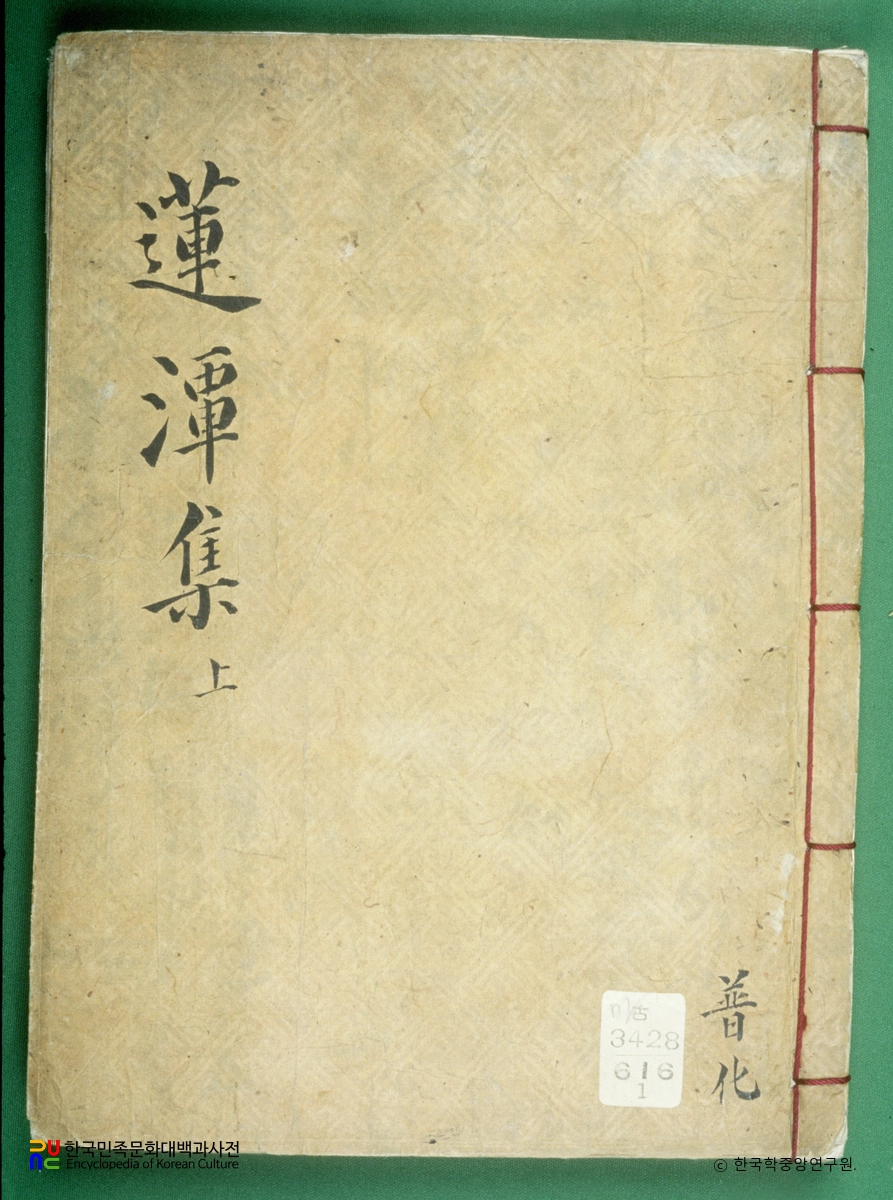 蓮潭集上
普化
古
3428
616
1
한국민족문화대백과사전
Encyclopedia of Korean Culture
ⓒ 한국학중앙연구원.